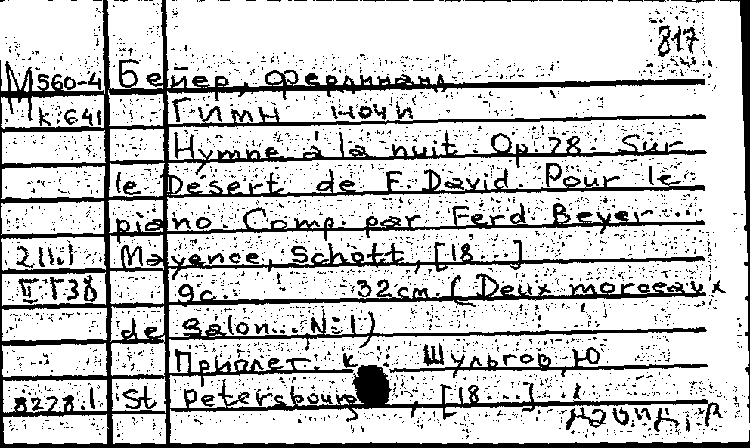 817
М560-4 Бейер, Фердинанд
к.641 Гимн ночи
Hymne à la nuit. Op.78. Sur
le Desert de F. David. Pour le
piano. Comp. par Ferd. Beyer...
2.11.1 Mayence, Schott, [18...]
II Г38 9с. 32см. (Deux morceaux
de salon... N:1)
Приплет. к: Шульгов, Ю
8278.1 St. Petersbourg, [18...]
Давид, Ф